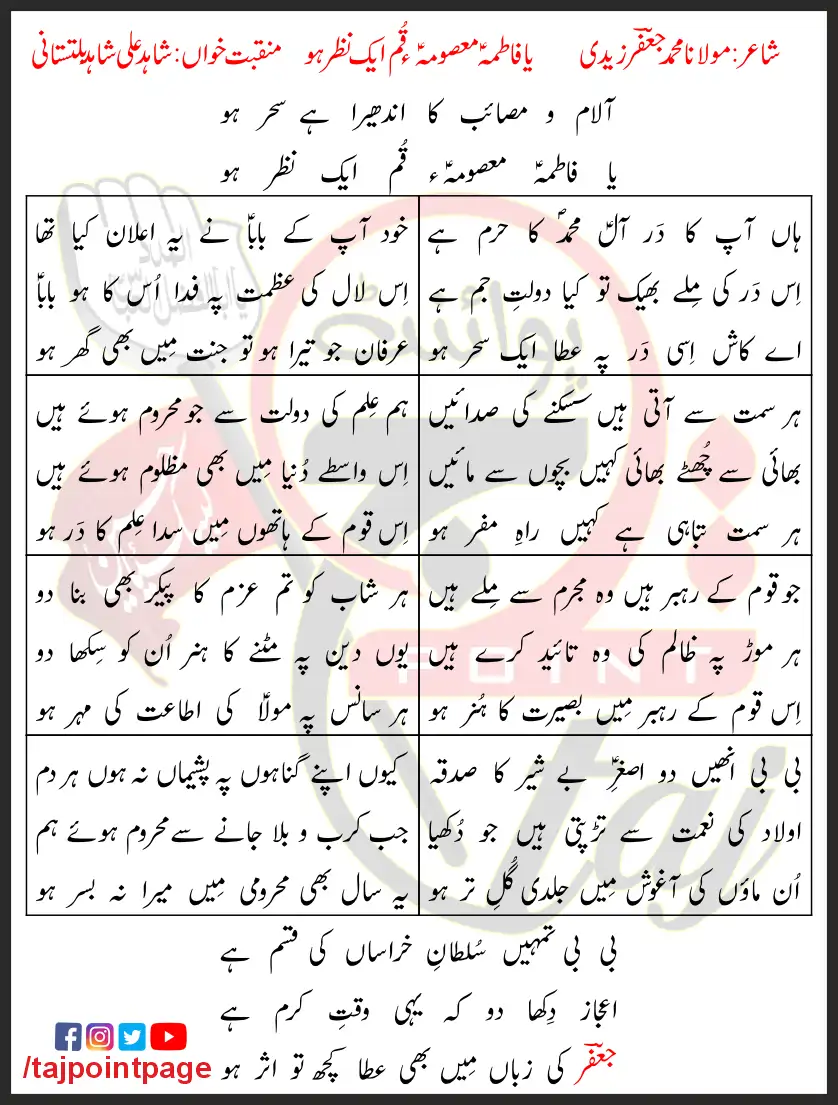 شاعر: مولانا محمد جعفؔر زیدی یا فاطمہؑ معصومہؑ ء قُم ایک نظر ہو منقبت خواں: شاہد علی شاہد بلتستانی
آلام و مصائب کا اندھیرا ہے سحر ہو
یا فاطمہؑ معصومہؑ ء قُم ایک نظر ہو
ہاں آپ کا دَر آلؑ محمدؐ کا حرم ہے
اِس دَر کی مِلے بھیک تو کیا دولتِ جم ہے
اے کاش اِسی دَر پہ عطا ایک سحر ہو
خود آپ کے باباؑ نے یہ اعلان کیا تھا
اِس لال کی عظمت پہ فدا اُس کا ہو باباؑ
عرفان جو تیرا ہو تو جنت مِیں بھی گھر ہو
ہر سمت سے آتی ہیں سسکنے کی صدائیں
بھائی سے چُھٹے بھائی کہیں بچوں سے مائیں
ہر سمت تباہی ہے کہیں راہِ مفر ہو
ہم عِلم کی دولت سے جو محروم ہوئے ہیں
اِس واسطے دُنیا مِیں بھی مظلوم ہوئے ہیں
اِس قوم کے ہاتھوں مِیں سدا عِلم کا دَر ہو
جو قوم کے رہبر ہیں وہ مجرم سے مِلے ہیں
ہر موڑ پہ ظالم کی وہ تائید کرے ہیں
اِس قوم کے رہبر مِیں بصیرت کا ہُنر ہو
ہر شاب کو تم عزم کا پیکر بھی بنا دو
یوں دین پہ مٹنے کا ہنر اُن کو سِکھا دو
ہر سانس پہ مولاؑ کی اطاعت کی مہر ہو
بی بی انھیں دو اصغرِؑ بے شیر کا صدقہ
اولاد کی نعمت سے تڑپتی ہیں جو دُکھیا
اُن ماؤں کی آغوش مِیں جلدی گُلِ تر ہو
کیوں اپنے گناہوں پہ پشیماں نہ ہوں ہر دم
جب کرب و بلا جانے سے محروم ہوئے ہم
یہ سال بھی محرومی مِیں میرا نہ بسر ہو
بی بی تمہیں سُلطانِ خراساں کی قسم ہے
اعجاز دِکھا دو کہ یہی وقتِ کرم ہے
جعفؔر کی زباں مِیں بھی عطا کچھ تو اثر ہو
/tajpointpage
POINT
taj